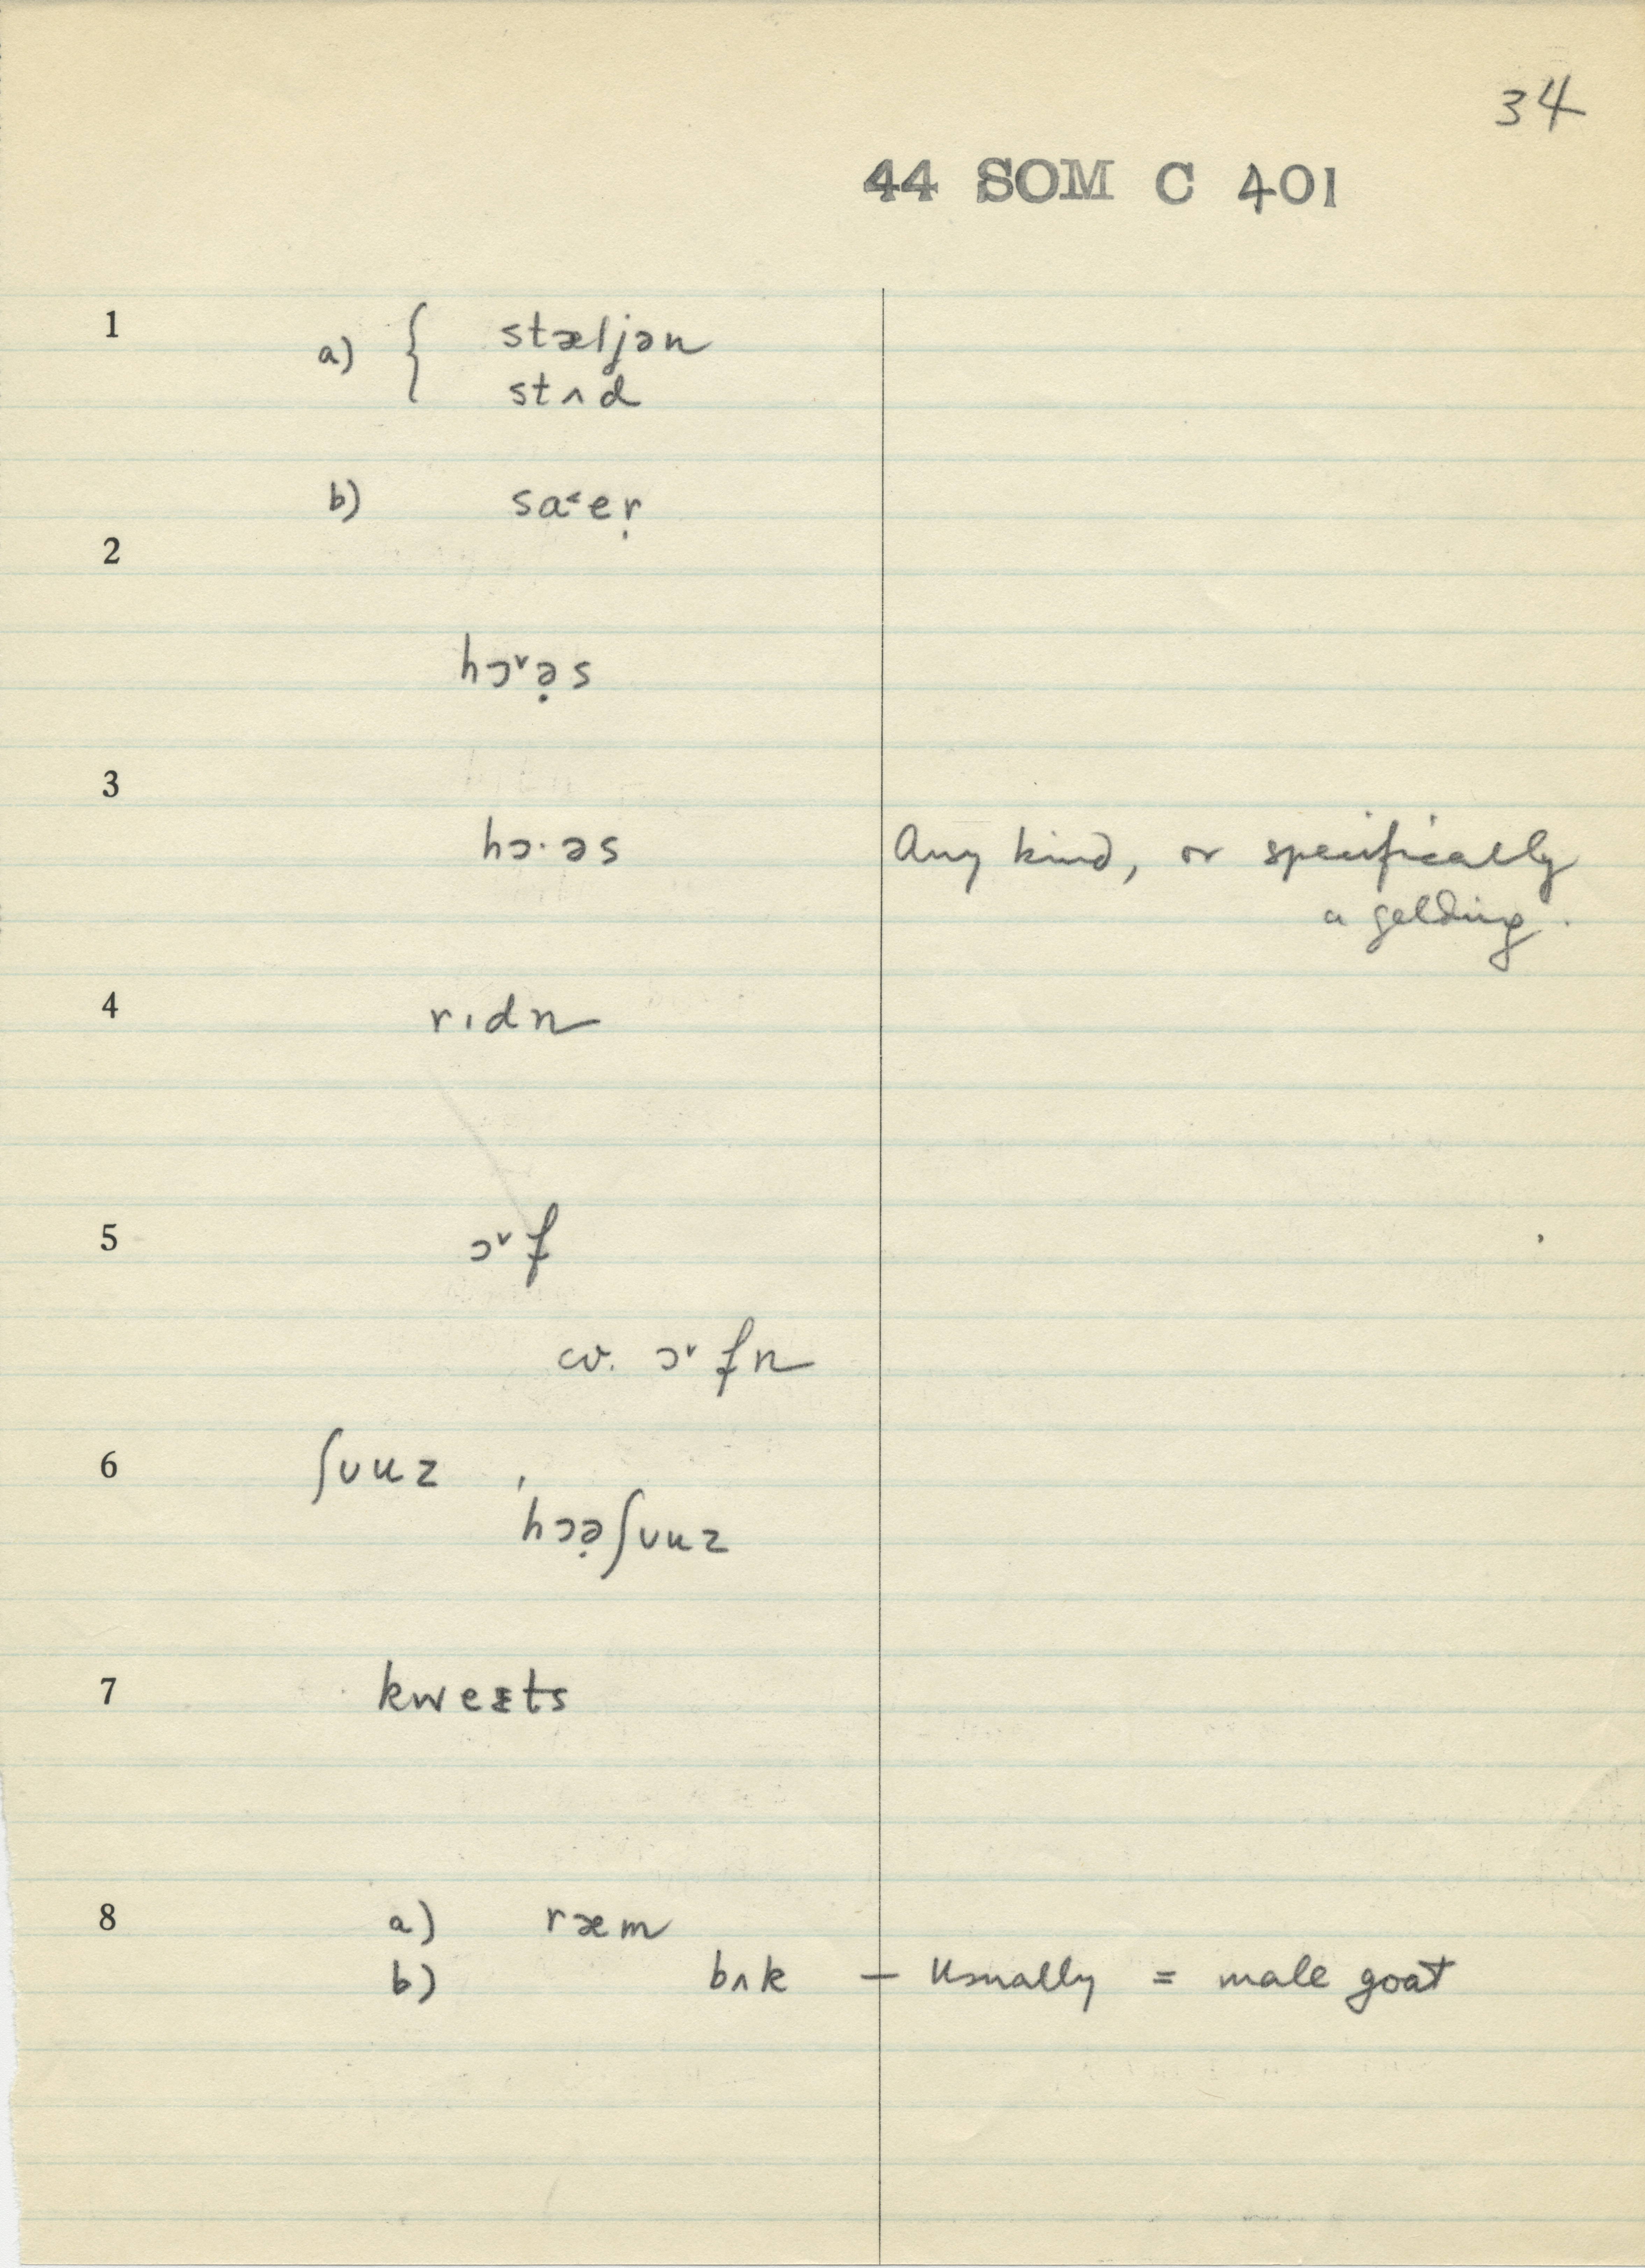 34
44 SOM C 401
1 a) { stæljən
stʌd
b) sa˂eṛ
2
hɔ˅ə̣s
3
hɔ·əs Any kind, or specifically
a gelding.
4 rıdn
5 ɔ˅f
cv. ɔ˅fn
6 ʃuuz ,
hɔə̣ʃuuz
7
8 a) ræm
b) bʌk — Usually = male goat